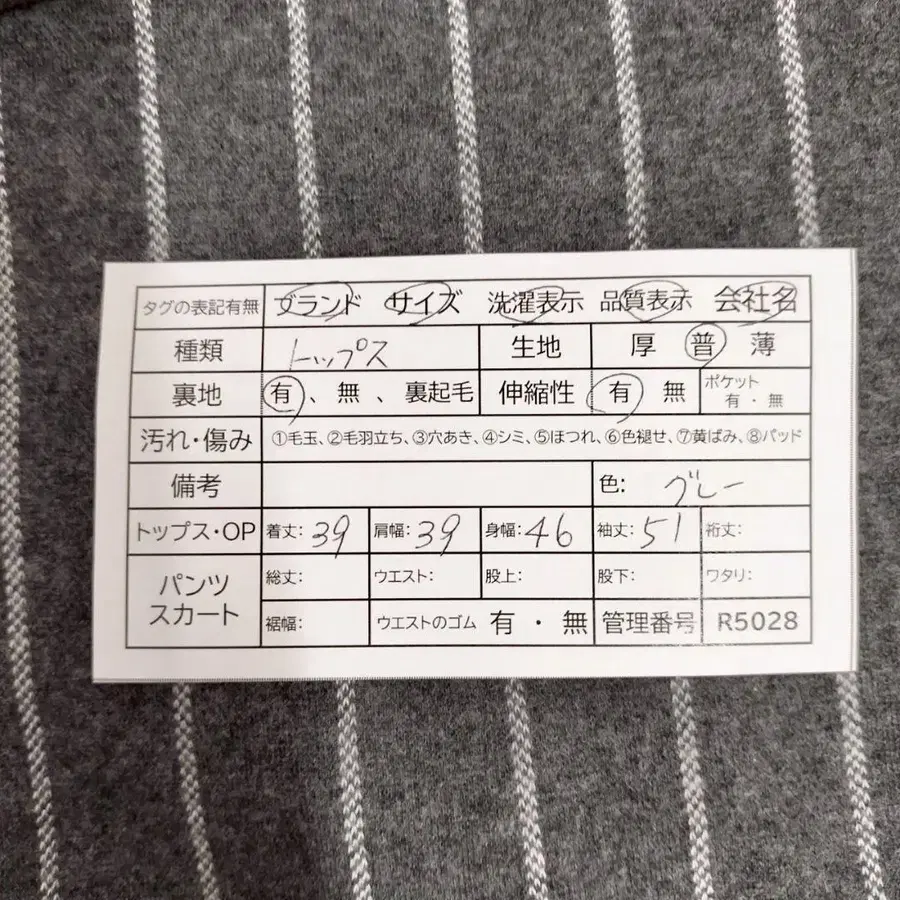 タグの表記有無 ブランド サイズ 洗濯表示 品質表示 会社名
種類 トップス 生地 厚 普 薄
裏地 有、無、裏起毛 伸縮性 有 無 ポケット 有・無
汚れ・傷み ①毛玉、②毛羽立ち、③穴あき、④シミ、⑤ほつれ、⑥色褪せ、⑦黄ばみ、⑧パッド
備考 色: グレー
トップス・OP 着丈: 39 肩幅: 39 身幅: 46 袖丈: 51 裄丈:
パンツ スカート 総丈: ウエスト: 股上: 股下: ワタリ:
裾幅: ウエストのゴム 有・無 管理番号 R5028